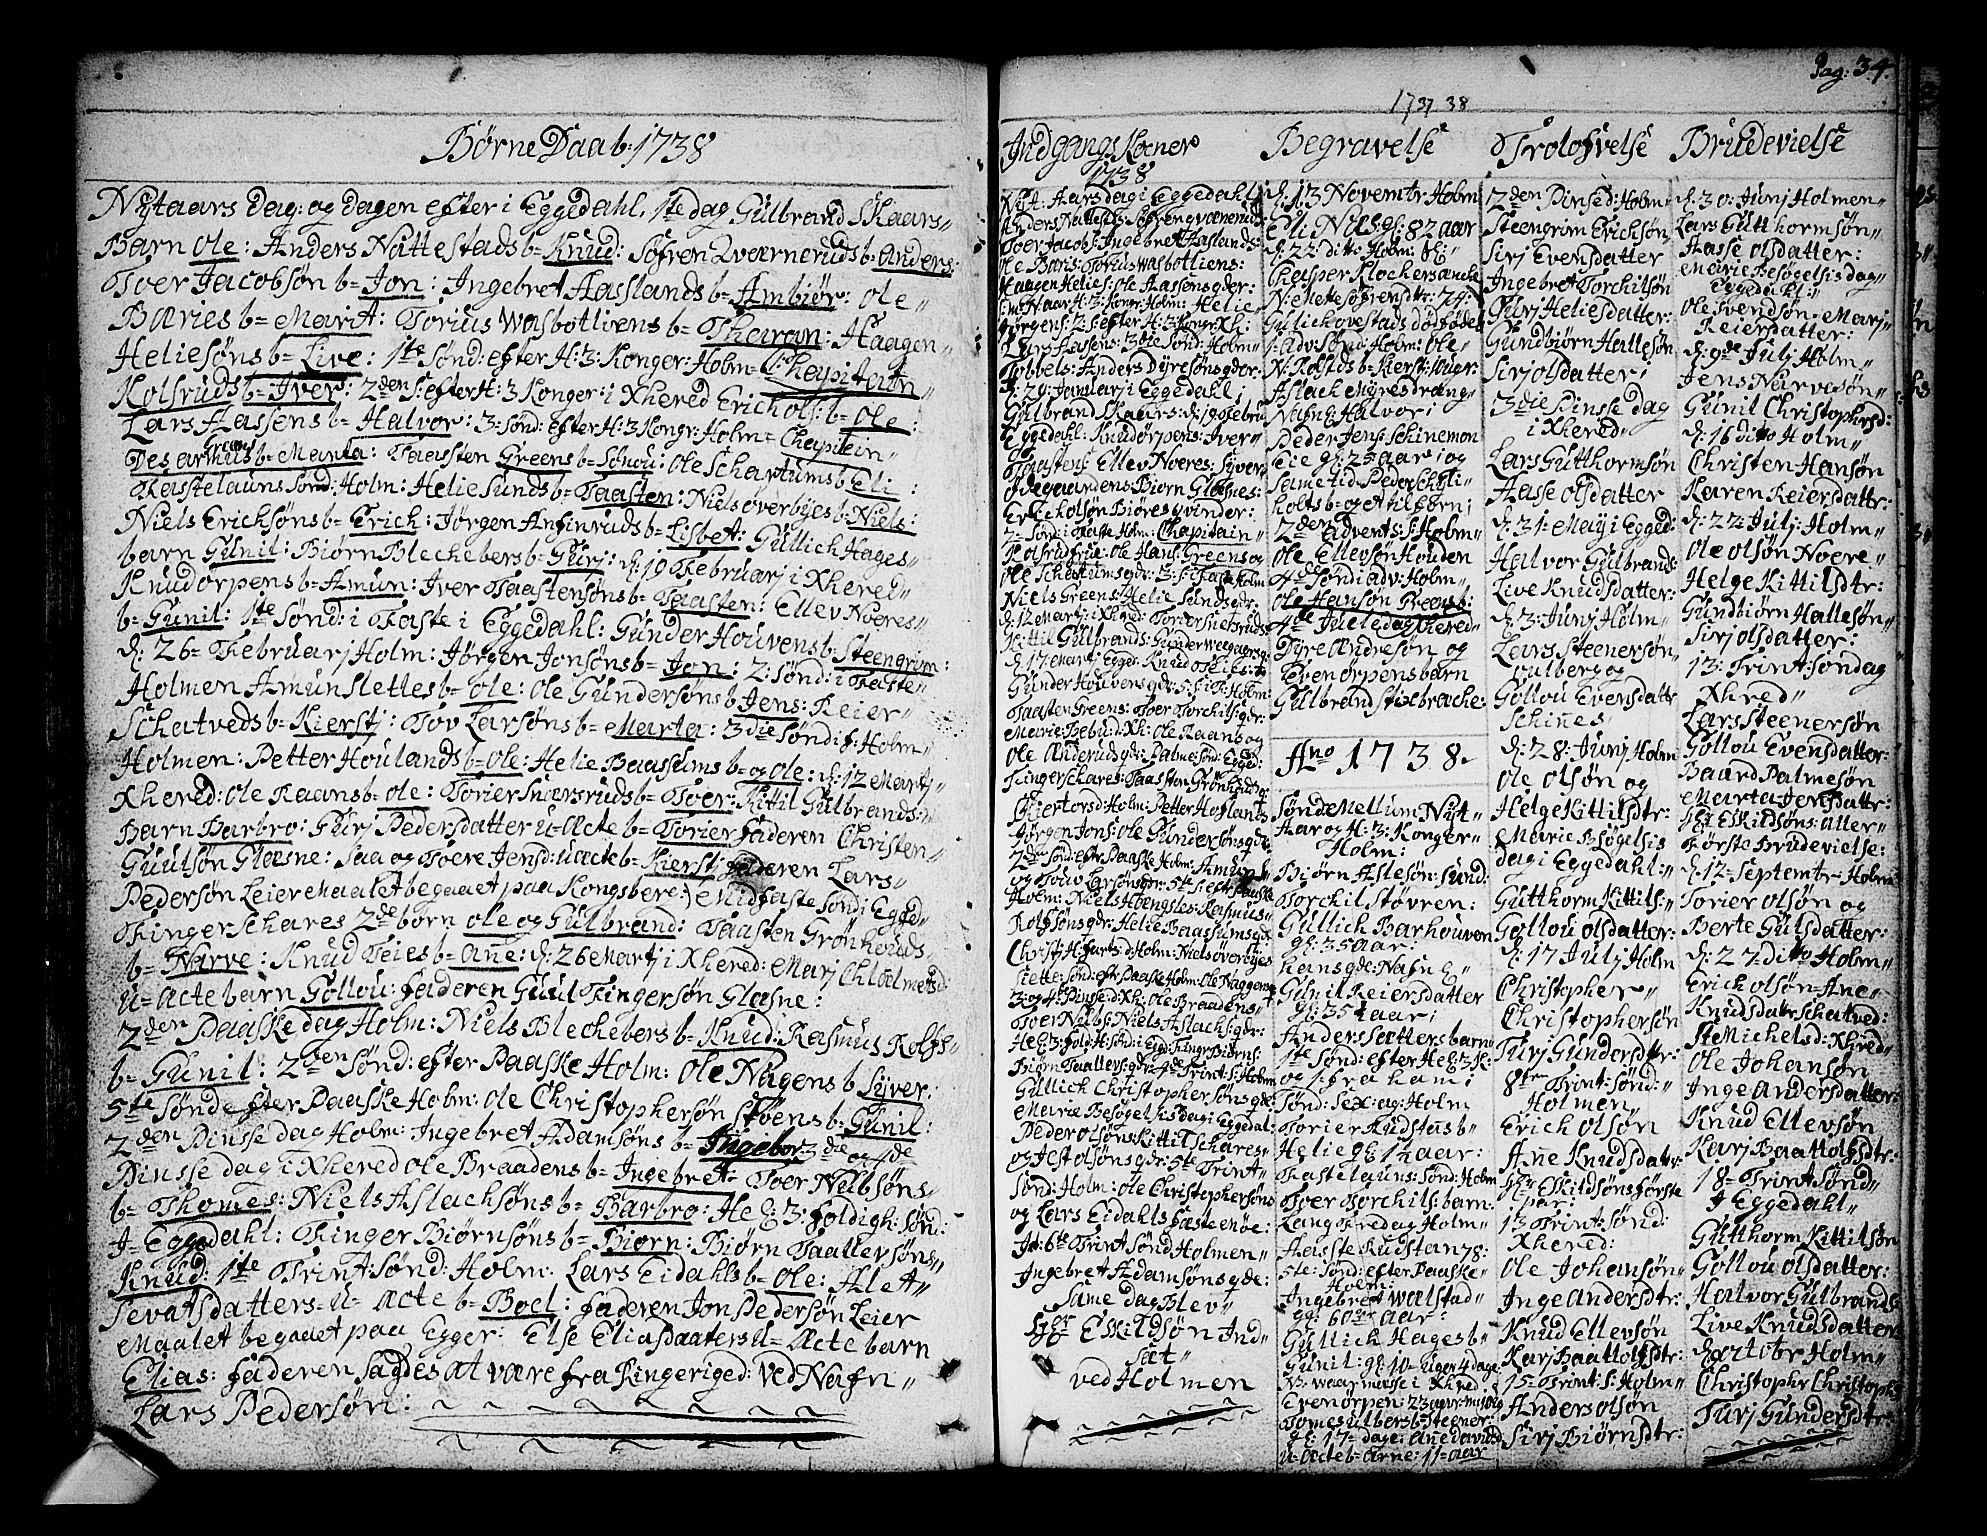 Pag: 34.
1737 38
Børne Daab: 1738
Nÿtaars dag: og dagen efter i Eggedahl, 1te dag Gulbrand Skaars"
Barn Ole: Anders Nattestads b= Knud: Søfren Qværneruds b= Anders:
Toer Jacobsøn b= Jon: Ingebret Aasslands b= Ambiør: Ole"
Baries b= Marit: Torius Wasbotlivens b= Tharan: Haagen"
Heliesøns b= Live: 1te Sønd: efter H: 3: Konger: Holm= Chapitein"
Kolsruds b= Iver: 2den S: efter H: 3 Konger: i Xhered Erich Ols: b= Ole:
Lars Aassens b= Halvor: 3: Sønd: efter H: 3 Kongr: Holm= Chapitein"
Des armus b= Marta: Taasten Greens b= Sønou: Ole Schartums b Eli:
Fastelauns Sønd: Holm: Helie Sunds b= Taasten: Niels Øverbyes b= Niels:
Niels Erichsøns b= Erich: Jørgen Anfinruds b= Lisbet: Gullich Hages"
barn Gunil: Biørn Blechebers b= Gurj: d: 19 Februarj i Xhered"
Knud Ørpens b= Amun: Iver Taastensøns b= Taasten: Ellev Noeres"
b= Gunil: 1te Sønd: i Faste i Eggedahl: Gunder Houvens b= Steengrim:
d: 26= Februarj Holm: Jørgen Jonsøns b= Jon: 2: Sønd: i Faste"
Holmen Amun Slettes b= Ole: Ole Gundersøns b Jens: Reier"
Schatveds b= Kierstj: Tov Larsøns b= Marta: 3die Sønd: f: Holm"
Holmen: Petter Houlands b= Ole: Helie Baassums b= og Ole: d: 12 Martj
Xhered: Ole Raans b= Ole: Torier Snersruds b= Toer: Kittil Gulbrands:"
Barn Barbro: Gurj Pedersdatter u-ægte b= Torier faderen Christen"
Guulsøn Glæsne: Saa og Toere Jensd: uægte b= Kierst: faderen Lars"
Pedersøn Leiermaalet begaaet paa Kongsberg:) Midfaste Sønd i Egge"
Finger Schares 2de børn Ole og Gulbrand: Taasten Grønhouds"
b= Narve: Knud Teies b= Ane: d: 26 Martj i Xhered: Marj
u=ægte barn Gollou: faderen Guul Fingersøn Glæsne:
2den Paaske dag Holm: Niels Blechebers b= Knud: Rasmus Rolfs"
b= Gunil: 2den Sønd: efter Paaske Holm: Ole Nagens b Syver:
5te Sønd efter Paaske Holm: Ole Christophersøn Støens b= Gunil:
2den Pinsse dag Holm: Ingebret Adamsøns b= Ingebor: 3die og 4de
Pinsse dag i Xhered Ole Braadens b= Ingebret: Toer Nubsøns"
b= Thomes: Niels Aslachsøns b= Barbro: He: 3: foldigh: Sønd:
I= Eggedahl: Finger Biørnsøns b= Biørn: Biørn Taallevsøns"
Knud: 1te Trint: Sønd: Holm: Lars Eidahls b= Ole: Alet"
Sevatsdatters u=ægte b= Boel: faderen Jon Pedersøn Leier
Maalet begaaet paa Egger: Else Eliasdaaters u=ægte barn
Elias: faderen sagdes at være fra Ringeriged: ved Nafn"
Lars Pedersøn:
Indgangs Koener
1738
Nyt: Aarsdag i Eggedahl
Anders Nattestds: Søfren Qværneruds:
Toer Jacobs: Ingebret Aaslands:
Ole Baris: Torius Wasbotliens:
Haagen Helies: Ole Aassens gdr:
Lars Aassens: 3die Sønd: Holm"
Tobbels: Anders Dyresøns gdr:
d: 29: Januarj i Eggedahl:
Gulbrand Skaars: d: 19 febru
Eggedahl: Knud Ørpens: Iver"
Taastens: Ellev Noeres: Syver
Ødegaardens Biørn Glæsnes:
2= Sønd: i Faste Holm: Chapitein"
Kolsrud frue: Ole Hans: Greens og
Ole Schartums gdr: 3: S: i Faste Holm
Niels Greens: Helie Sunds gdr:
d: 12 Martj i Xhered: Torier Snersruds:
Kittil Gulbrands:
d: 17: Martj Egger: Knud
Gunder Houvens gdr: 5: S: i F: Holm:
Taasten Greens: Toer Torchils gdr:
Marie Bebud: Xh: Ole Raans og
Ole Anderuds gdr: Palmesønd: Egged:
Finger Schares: Taasten Grønhuds gdr:
Skiertorsd: Holm: Petter Hoplands
Jørgen Jons: Ole Gundersøns gdr:
2den Sønd: eftr Paaske Holm: Amun Sl
og Touv Larsøns gdr: 5te S: eft Paaske
Holm: Niels
Rolfsøns gdr: Helie Baassums gdr:
Christj H: farts d: Holm: Niels Øverbyes
3 og 4 Pinse d: Xh: Ole Braadens"
Toer Nubs: Niels Aslachs: gdr:
He: 3: fold: H: Sønd: i Egg: Fingr Biørns:
Biørn Taallevs gdr: 1te Trint: S: Holm
Gullich Christophersøns gdr:
Marie Besøgelsis dag i Eggedal:
Peder Olsøns Kittil Schares"
og Jest Olsøns gdr: 5te Trint"
Sønd: Holm: Ole Christophersøns
og Lars Eidahls fæste
Jt: 6te Trint Sønd Holmen"
Ingebret Adamsøns gde:
Same dag Blev"
Hr: Eskildsøn Ind"
sæt"
ved Holmen
Begravelse
d: 13 Novembr: Holm
Eli Nils: gl: 82 aar
d: 22: dito: Holm:
Chasper Klochers
N: Mette Søfrensdtr: 74:
Gullichovestads dødfødet
1: Adv: Sønd: Holm: Ole"
N: Kolsds b= Kierstj: 10 uger:
Aslach Myres dreng"
Nafng Halvor:
Peder Jens: Schinemon
Eie gl: 25 aar: og
Same tid Peder Schji"
holts b= og et hil børn:
2den Advents: S: Holm"
Ole Ellevsøn Houden
4de Sønd i Adv: Holm"
Ole Hansøn Greens b:
4de Juele dag Xhered"
Dyre Andresøn og
Even Ørpens barn
Gulbrand Stixbrache:
Ano 1738.
Sønd: Mellum Nyt"
Aar og H: 3: Konger"
Holm:
Biørn Aslesøn: Sund:
Torchil Støvren:
Gullich Barhouven
gl: 35 aar:
hans gdr: Nafng"
Gunil Reiersdatter
gl: 35 aar:
Anders Sætters barn:
1te Sønd: efter He: 3 K:
og 1: fra ham:
Sønd: Sex: ag: Holm
Torier Rudstus b"
Helie gl 1½ aar:
Fastelauns: Sønd: Holm
Toer Torchils: barn:
Lang Fredag Holm"
Aasste Rudstan 78:
5te: Sønd: efter Paaske"
Holm:
Ingebret Walstad"
gl: 60 aar:
Gullich Hages b"
Gunil: gl: 10= Uger 4 dage
Even Ørpen: 23 aar:
Tomes Ulbers b= Steener:
gl: 17= dage: Ane Davidsd
U-ægte b= Arne: 11= aar
Trolofvelse
2den Pinsed: Holm:
Steengrim Erichsøn
Sirj Evensdatter
Ingebret Torchilsøn
Gurj Heliesdatter:
Gundbiørn Hallesøn
Sirj Olsdatter:
3die Pinsse dag
i Xhered"
Lars Gutthormsøn
Aasse Olsdatter
d: 31: Mayj i Egged:
Halvor Gulbrands:
Live Knudsdatter:
d: 3: Junj Holm"
Lars Steenersøn"
Gollou Evensdattr
Schines:
d: 28: Junj Holm
Ole Olsøn og
Helge Kittilsdtr:
Marie Besøgelsis
dag i Eggedahl:
Gutthorm Kittils:"
Gollou Olsdatter:
d: 17 Julj Holm
Christopher"
Christophersøn
Turj Gundersdtr:
8ten Trint: Sønd:"
Holmen"
Erich Olsøn
Ane Knudsdatr:
Hr Eskildsøns første
par:
13 Trint: Sønd:
Xhered:
Ole Johansøn"
Inge Andersdtr:
Knud Ellevsøn
Karj Baattolfsdtr:
15= Trint: S: Holm"
Anders Olsøn
Sirj Biørnsdtr:
Brudevielse
d: 30: Junj Holmen"
Lars Gutthormsøn"
Aasse Olsdatter:
Marie Besøgelsis dag"
Eggedahl:
Ole Svendsøn. Marj
Reiersdatter:
d: 9de Julj Holm"
Jens Narvesøn"
Gunil Christophersd:
d: 16 dito Holm"
Christen Hansøn
Karen Reiersdatter:
d: 22= Julj: Holm"
Ole Olsøn Noere"
Helge Kittilsdtr:
Gundbiørn Hallesøn"
Sirj Olsdatter:
13: Trint: Søndag
Xhered"
Lars Steenersøn
Gollou Evensdatter:
Baard Palmesøn
Marta Jensdatter:
Hr Eskildsøns aller"
første Brudevielse:
d: 12= Septembr= Holm
Torier Olsøn og
Berte Gulsdatter:
d: 27= dito Holm"
Erich Olsøn= Ane"
Knudsdatr Schatved:
St Michelsd: Xhred"
Ole Johansøn
Inge Andersdatter:
Knud Ellevsøn
Karj Baattolfsdtr:
18= Trint Sønd"
I Eggedahl"
Gutthorm Kittilsøn
Gollou Olsdatter:
Halvor Gulbrands:
Live Knudsdatter
Holm"
Christophr Christophs
Turj Gundersdtr: